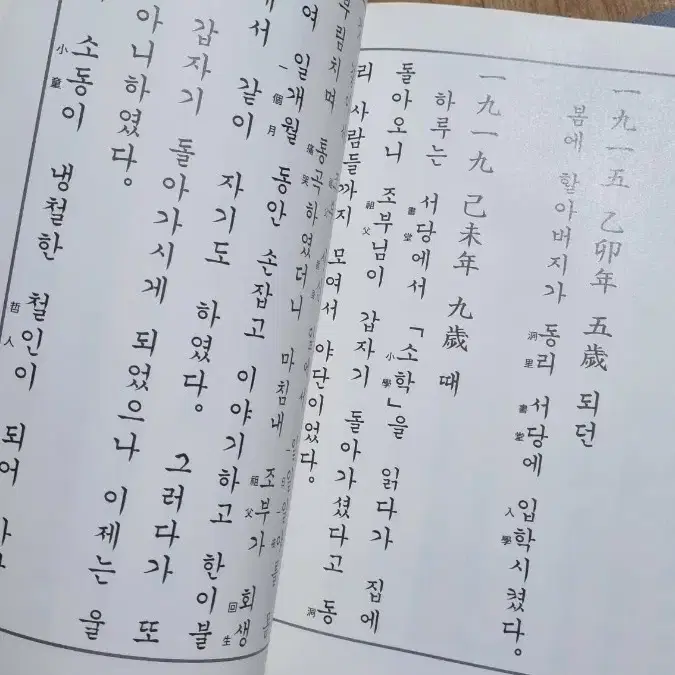 一九一五 乙卯年 五歲 되던
봄에 할아버지가 동리洞里 서당書堂에 입학入學시켰다.
一九一九 己未年 九歲 때
하루는 서당書堂에서 「소학小學」을 읽다가 집에
돌아오니 조부祖父님이 갑자기 돌아가셨다고 동洞
리 사람들까지 모여서 야단이었다.
부림치며 통곡痛哭하였더니 마침내 조부祖父가 회생回生
여 일개월一個月 동안 손잡고 이야기하고 한 이불
에서 같이 자기도 하였다. 그러다가 또
갑자기 돌아가시게 되었으나 이제는 울
아니하였다.
소동小童이 냉철한 철인哲人이 되어